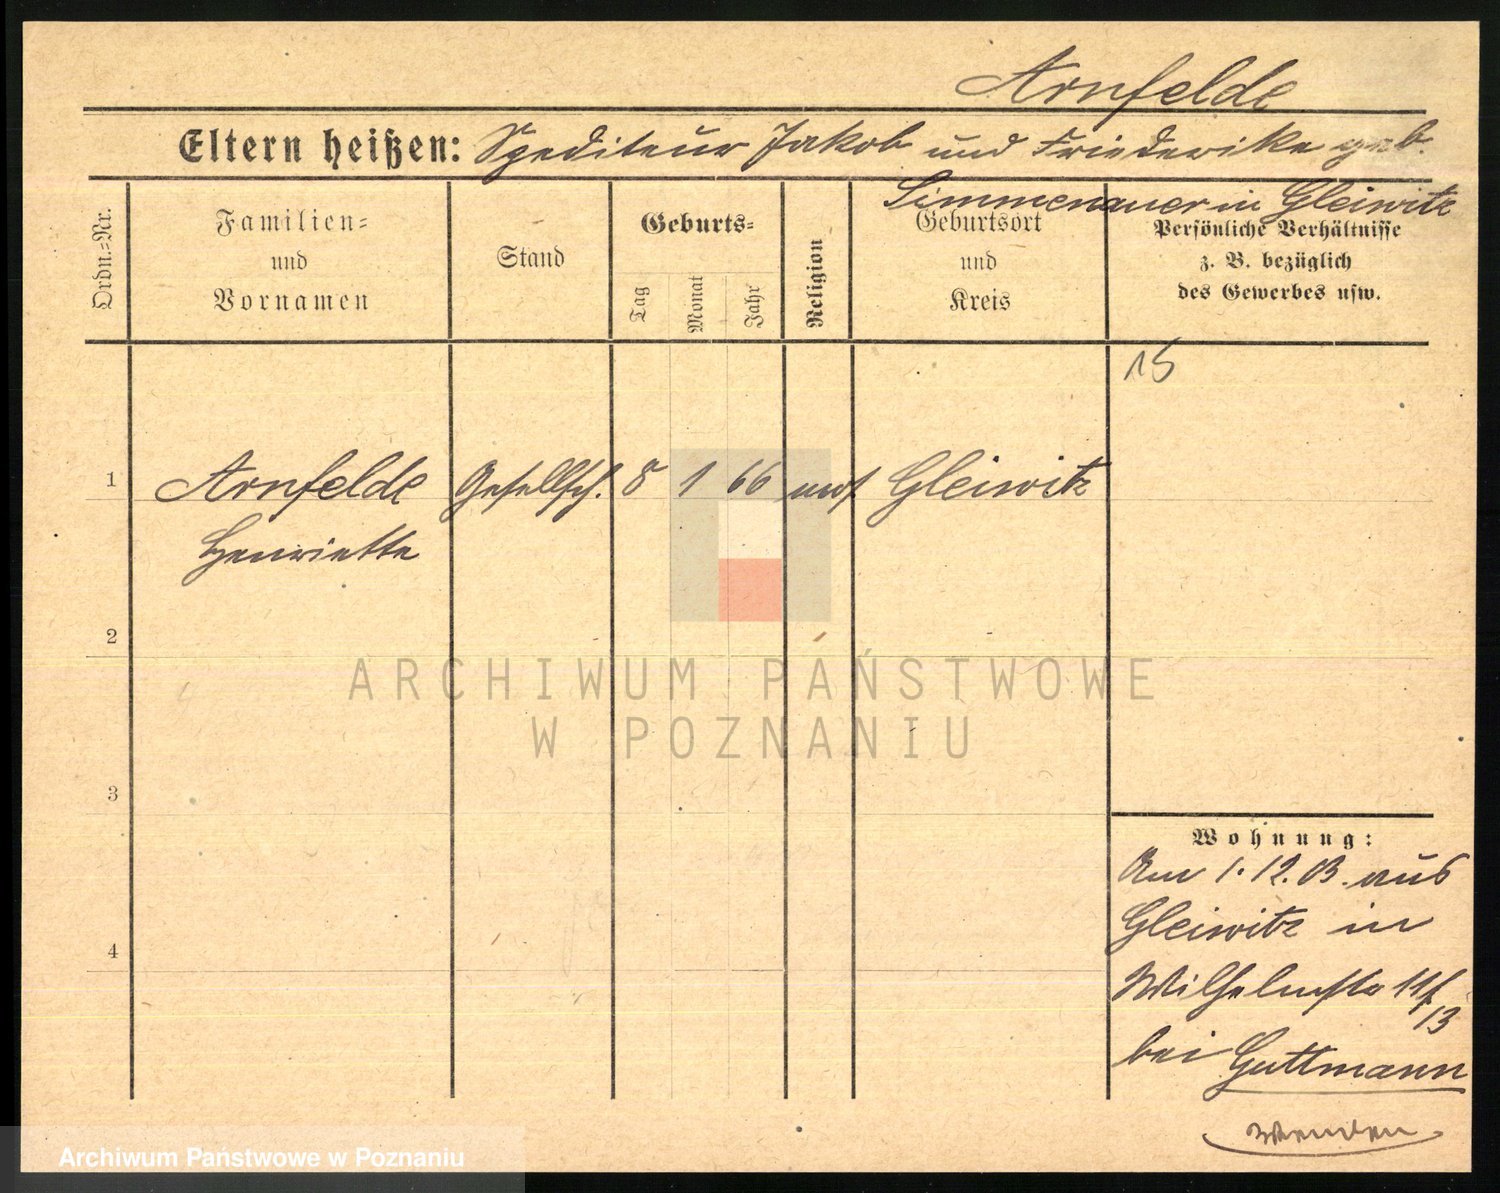 Arnfelde
Eltern heißen: Spediteur Jakob und Friederike geb.
Simmenauer in Gleiwitz
Ordn.=Nr.
Familien=
und
Vornamen
Stand
Geburts=
Tag
Monat
Jahr
Religion
Geburtsort
und
Kreis
Persönliche Verhältnisse
z. B. bezüglich
des Gewerbes usw.
15
1 Arnfelde Gesellsch. 8 1 66 mos. Gleiwitz
Henriette
2
3
4
Wohnung:
Am 1.12.03. aus
Gleiwitz in
Wilhelmstr 11/
13
bei Guttmann
wenden
ARCHIWUM PAŃSTWOWE
W POZNANIU
Archiwum Państwowe w Poznaniu